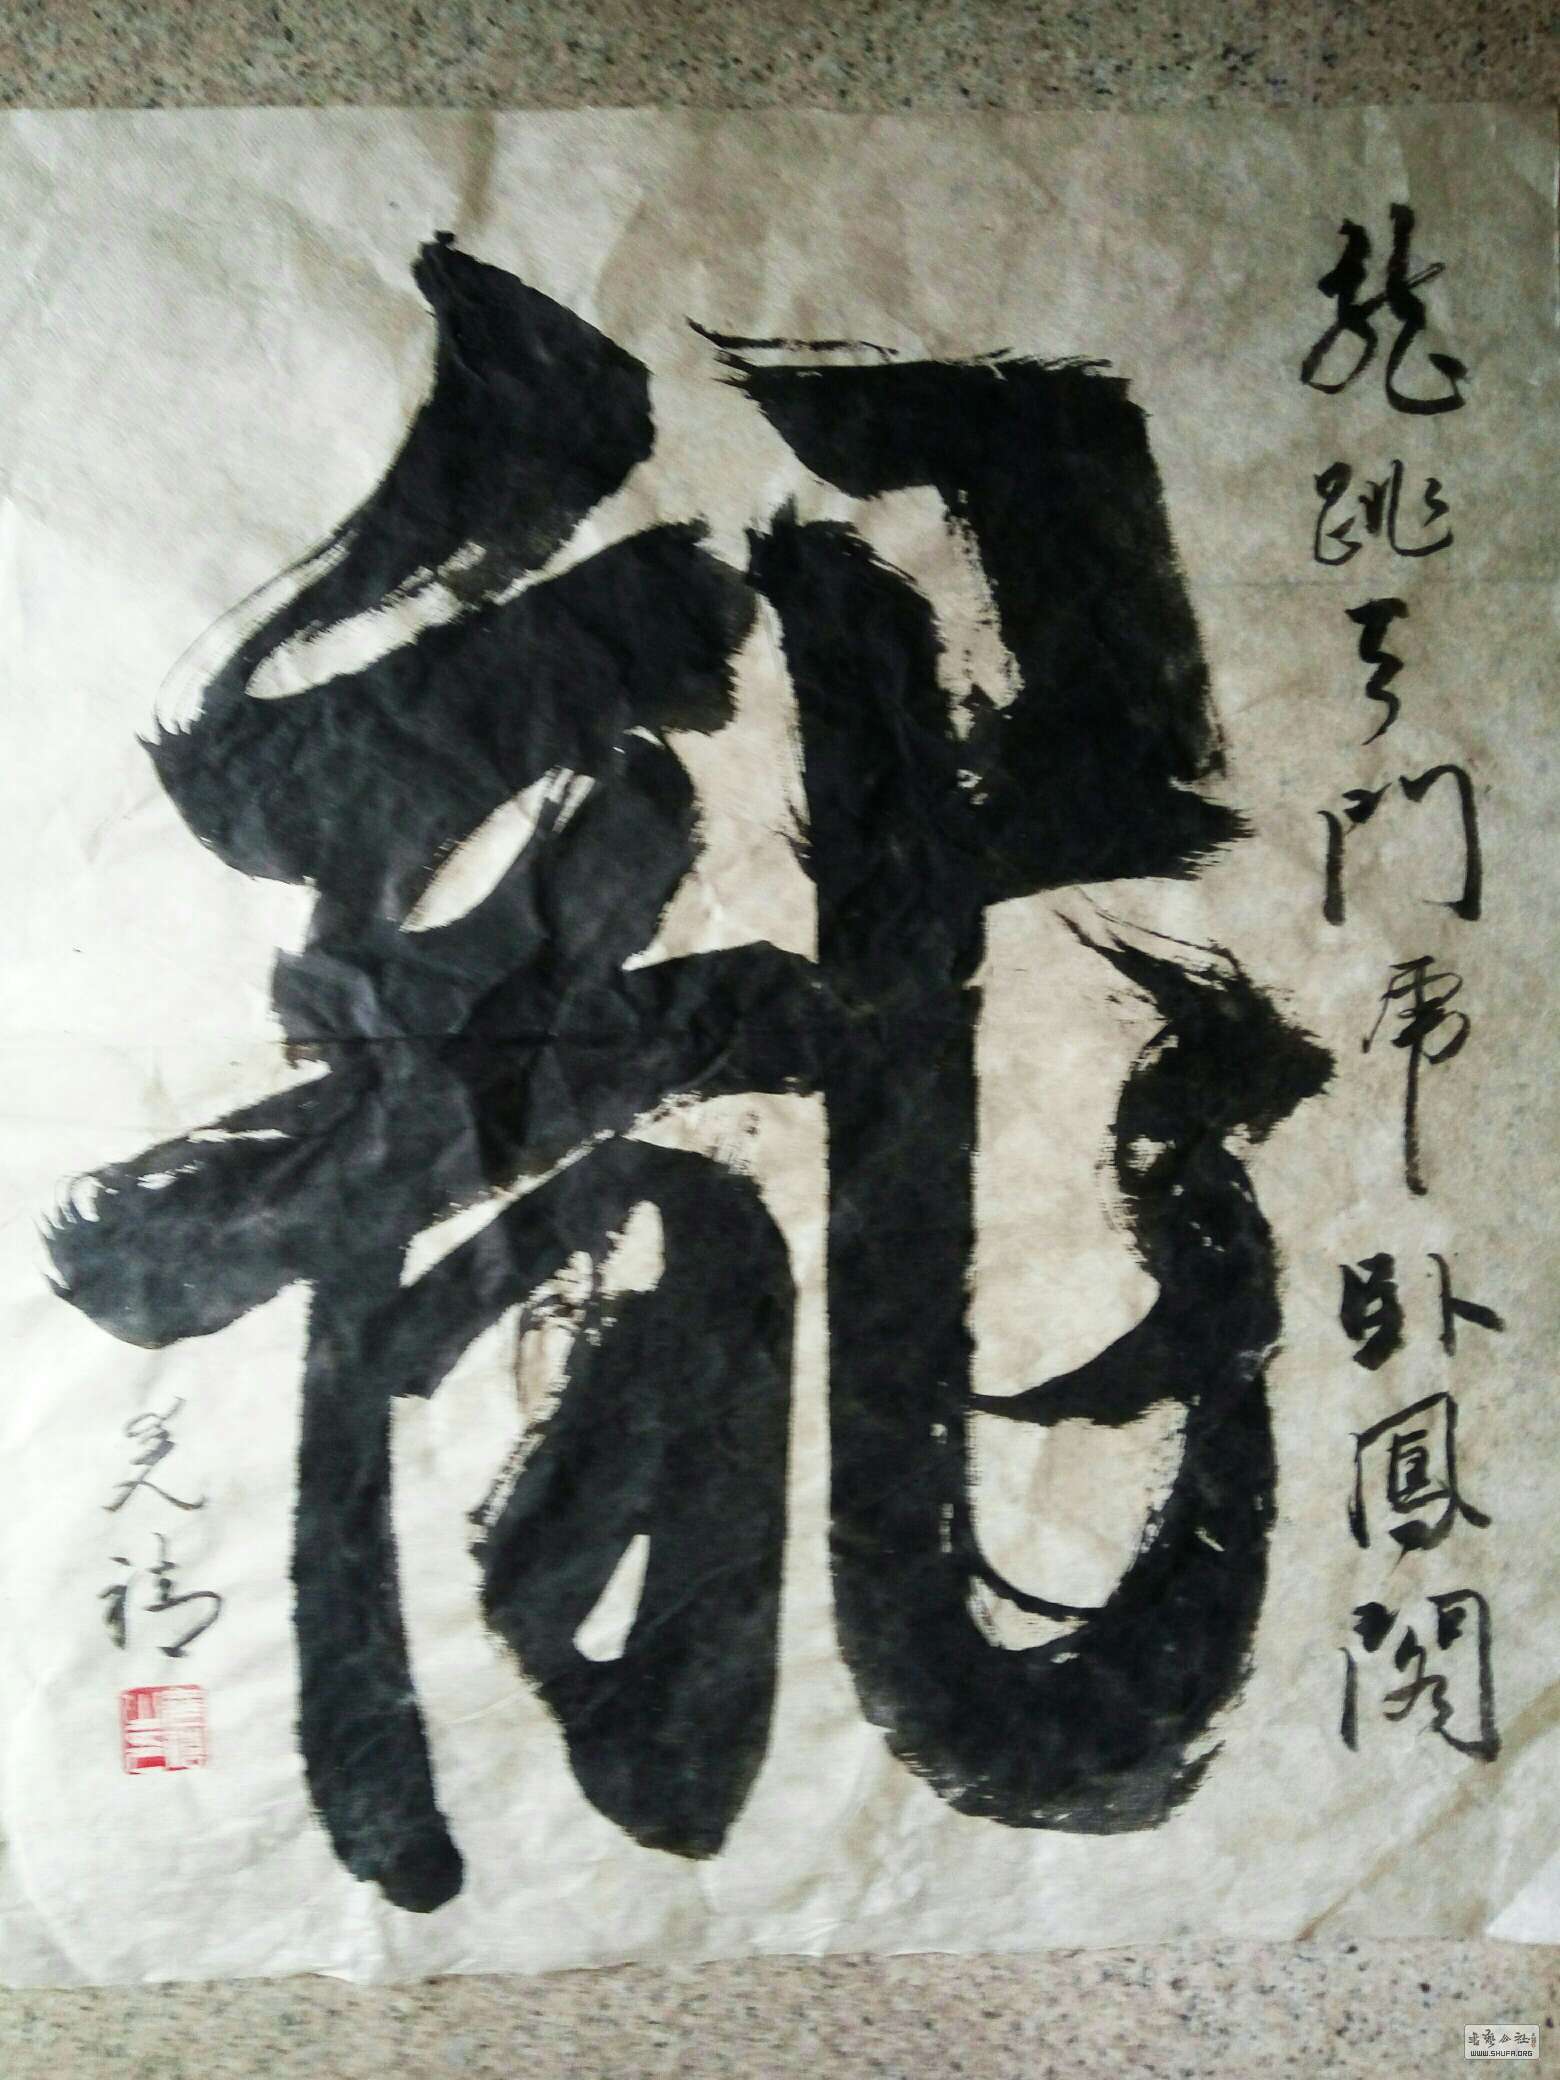 龍跳天門虎卧鳳閣
龍
书艺公社
WWW.SHUFA.ORG